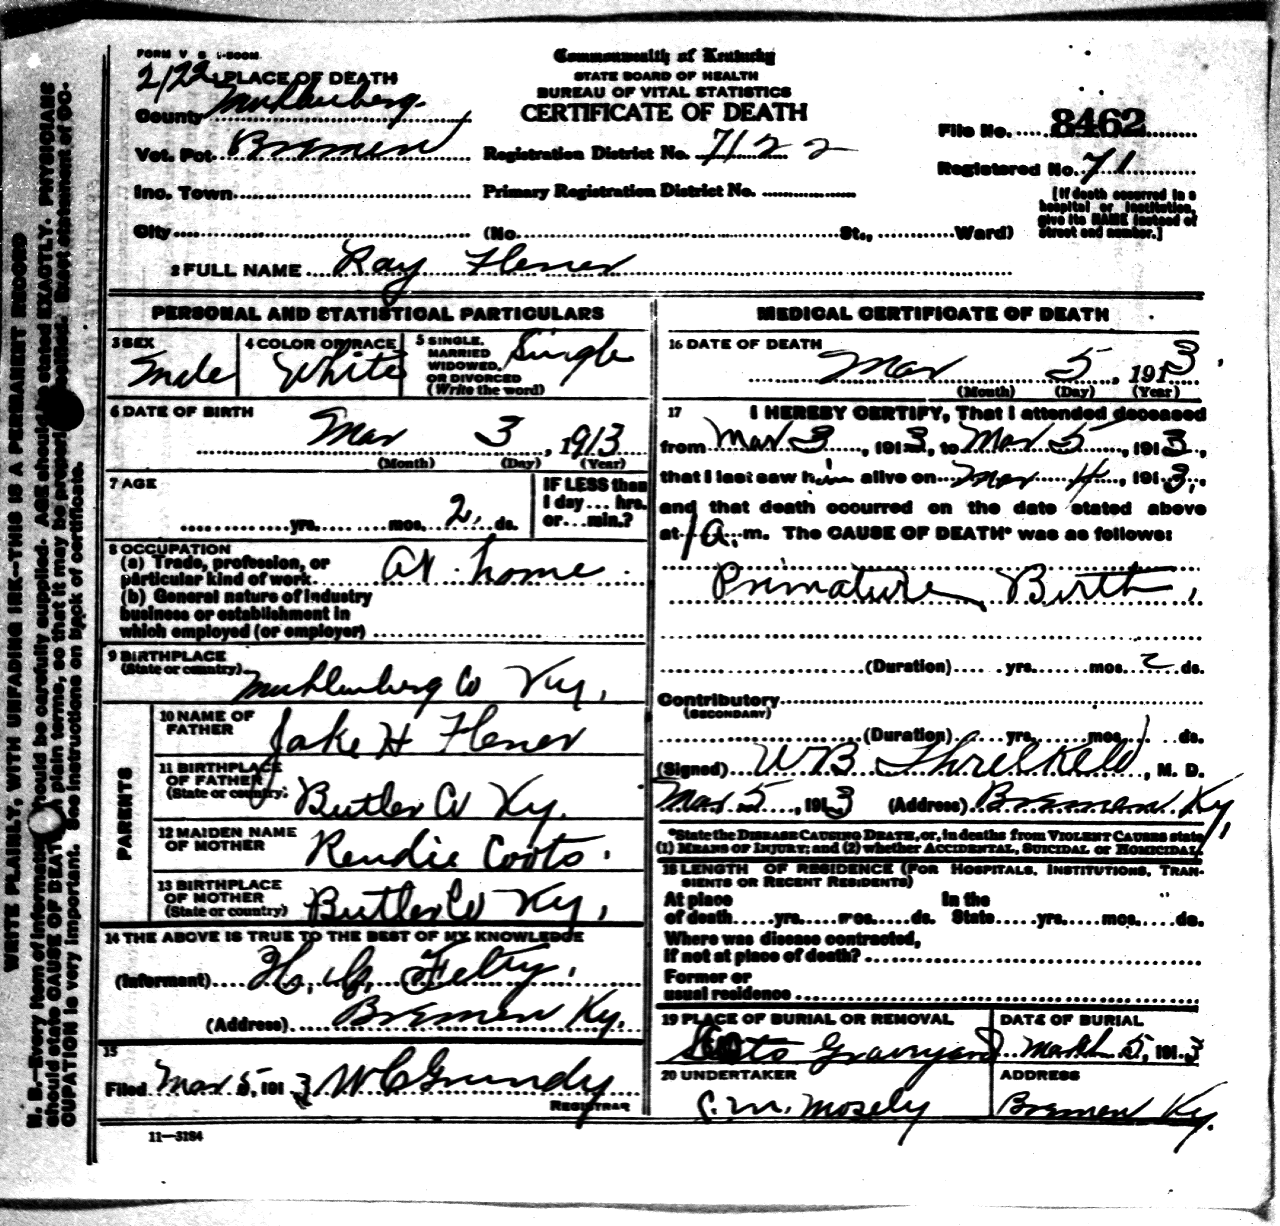 FORM V S 1-500M
Commonwealth of Kentucky
STATE BOARD OF HEALTH
BUREAU OF VITAL STATISTICS
CERTIFICATE OF DEATH
2122
1 PLACE OF DEATH
County Muhlenberg
Vot. Pct. Bremen
Inc. Town
City
Registration District No. 7122
Primary Registration District No.
(No. St., Ward)
File No. 8462
Registered No. 71
[If death occurred in a
hospital or institution,
give its NAME instead of
street and number.]
2 FULL NAME Ray Flener
PERSONAL AND STATISTICAL PARTICULARS
3 SEX
Male
4 COLOR OR RACE
White
5 SINGLE,
MARRIED
WIDOWED,
OR DIVORCED
(Write the word)
Single
6 DATE OF BIRTH
Mar 3, 1913
(Month) (Day) (Year)
7 AGE
yrs. mos. 2 ds.
IF LESS than
1 day... hrs.
or... min.?
8 OCCUPATION
(a) Trade, profession, or
particular kind of work At home
(b) General nature of industry
business or establishment in
which employed (or employer)
9 BIRTHPLACE
(State or country)
Muhlenberg Co Ky.
PARENTS
10 NAME OF
FATHER
Jake H Flener
11 BIRTHPLACE
OF FATHER
(State or country)
Butler Co Ky.
12 MAIDEN NAME
OF MOTHER
Rendie Coots.
13 BIRTHPLACE
OF MOTHER
(State or country)
Butler Co Ky,
14 THE ABOVE IS TRUE TO THE BEST OF MY KNOWLEDGE
(Informant) H. Felty.
(Address) Bremen Ky.
15
Filed Mar 5, 1913 W C Grundy
REGISTRAR
11—3184
MEDICAL CERTIFICATE OF DEATH
16 DATE OF DEATH
Mar 5, 1913
(Month) (Day) (Year)
17 I HEREBY CERTIFY, That I attended deceased
from Mar 3, 1913, to Mar 5, 1913,
that I last saw him alive on Mar 4, 1913,
and that death occurred on the date stated above
at 1 a. m. The CAUSE OF DEATH* was as follows:
Primature Birth,
(Duration) yrs. mos. 2 ds.
Contributory
(SECONDARY)
(Duration) yrs. mos. ds.
(Signed) W B Threlkeld, M. D.
Mar 5, 1913 (Address) Bremen Ky,
*State the DISEASE CAUSING DEATH, or, in deaths from VIOLENT CAUSES state
(1) MEANS OF INJURY; and (2) whether ACCIDENTAL, SUICIDAL or HOMICIDAL.
18 LENGTH OF RESIDENCE (FOR HOSPITALS, INSTITUTIONS, TRAN-
SIENTS OR RECENT RESIDENTS)
At place In the
of death yrs. mos. ds. State yrs. mos. ds.
Where was disease contracted,
If not at place of death?
Former or
usual residence
19 PLACE OF BURIAL OR REMOVAL
Graveyard
DATE OF BURIAL
March 5, 1913
20 UNDERTAKER
C. M. Mosely
ADDRESS
Bremen Ky.
WRITE PLAINLY, WITH UNFADING INK—THIS IS A PERMANENT RECORD
N. B.—Every item of information should be carefully supplied. AGE should be stated EXACTLY. PHYSICIANS
should state CAUSE OF DEATH in plain terms, so that it may be properly classified. Exact statement of OC-
CUPATION is very important. See instructions on back of certificate.